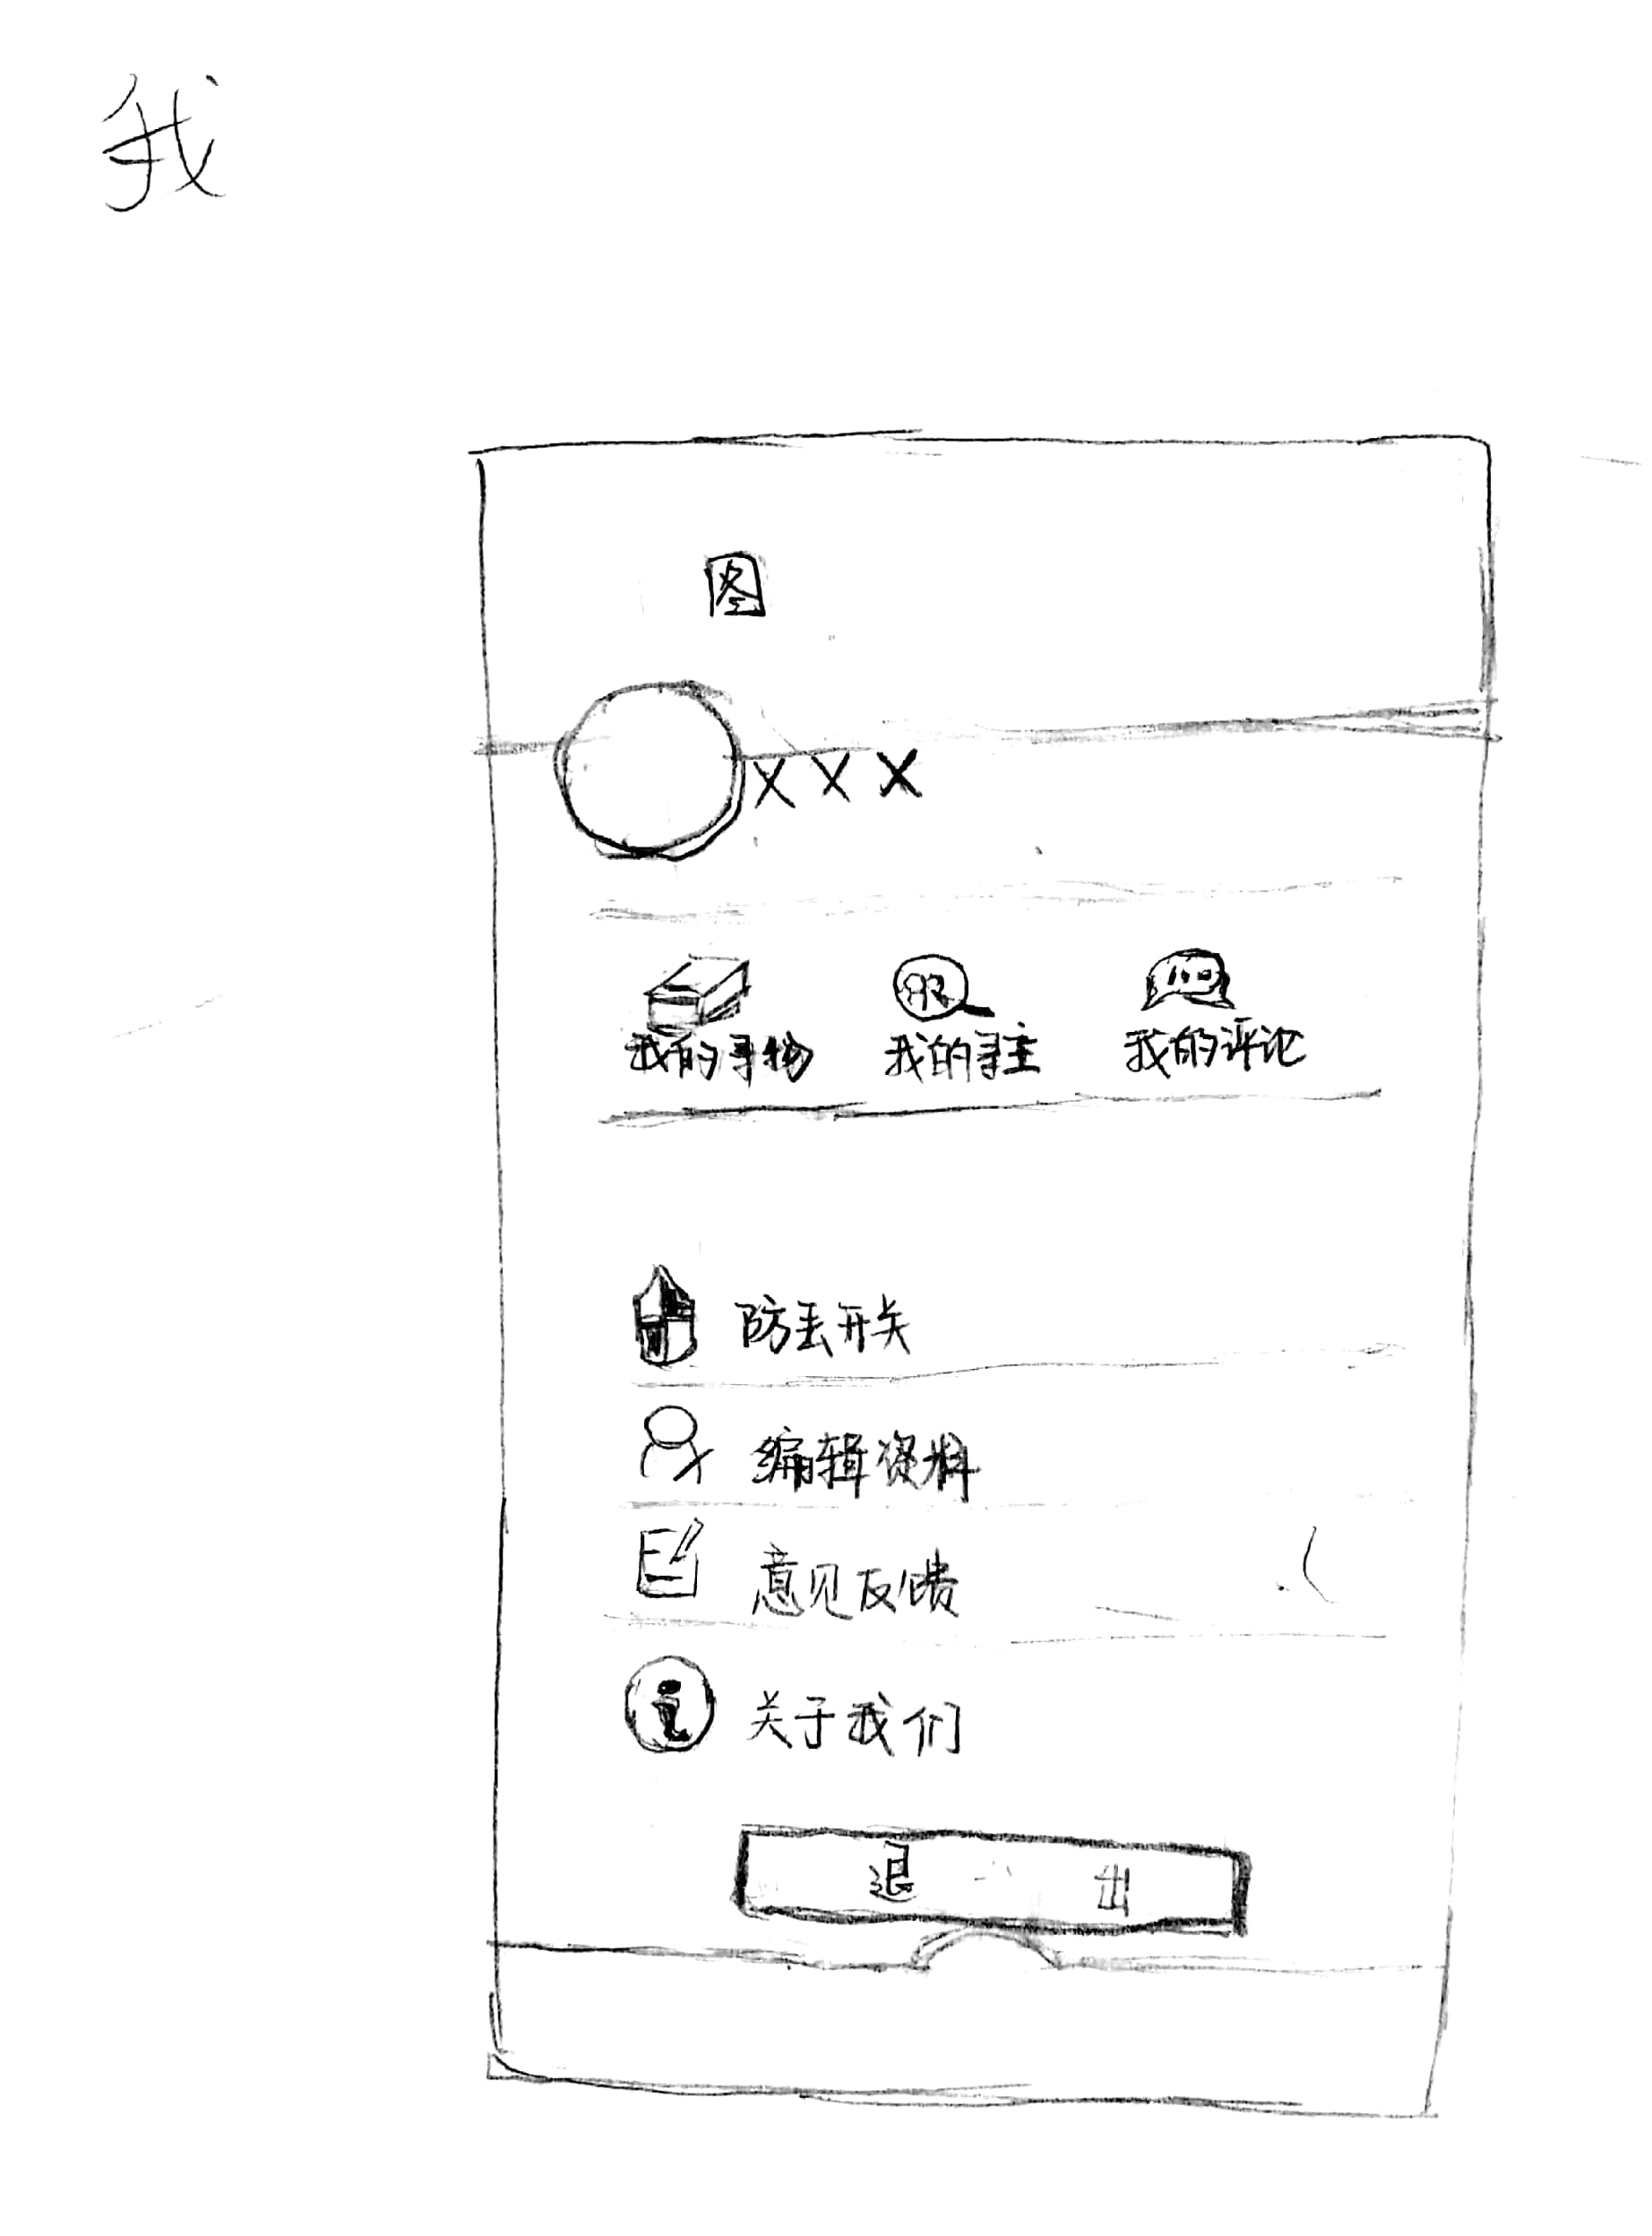 我
图
XXX
我的寻物 我的寻主 我的评论
防丢开关
编辑资料
意见反馈
关于我们
退 出